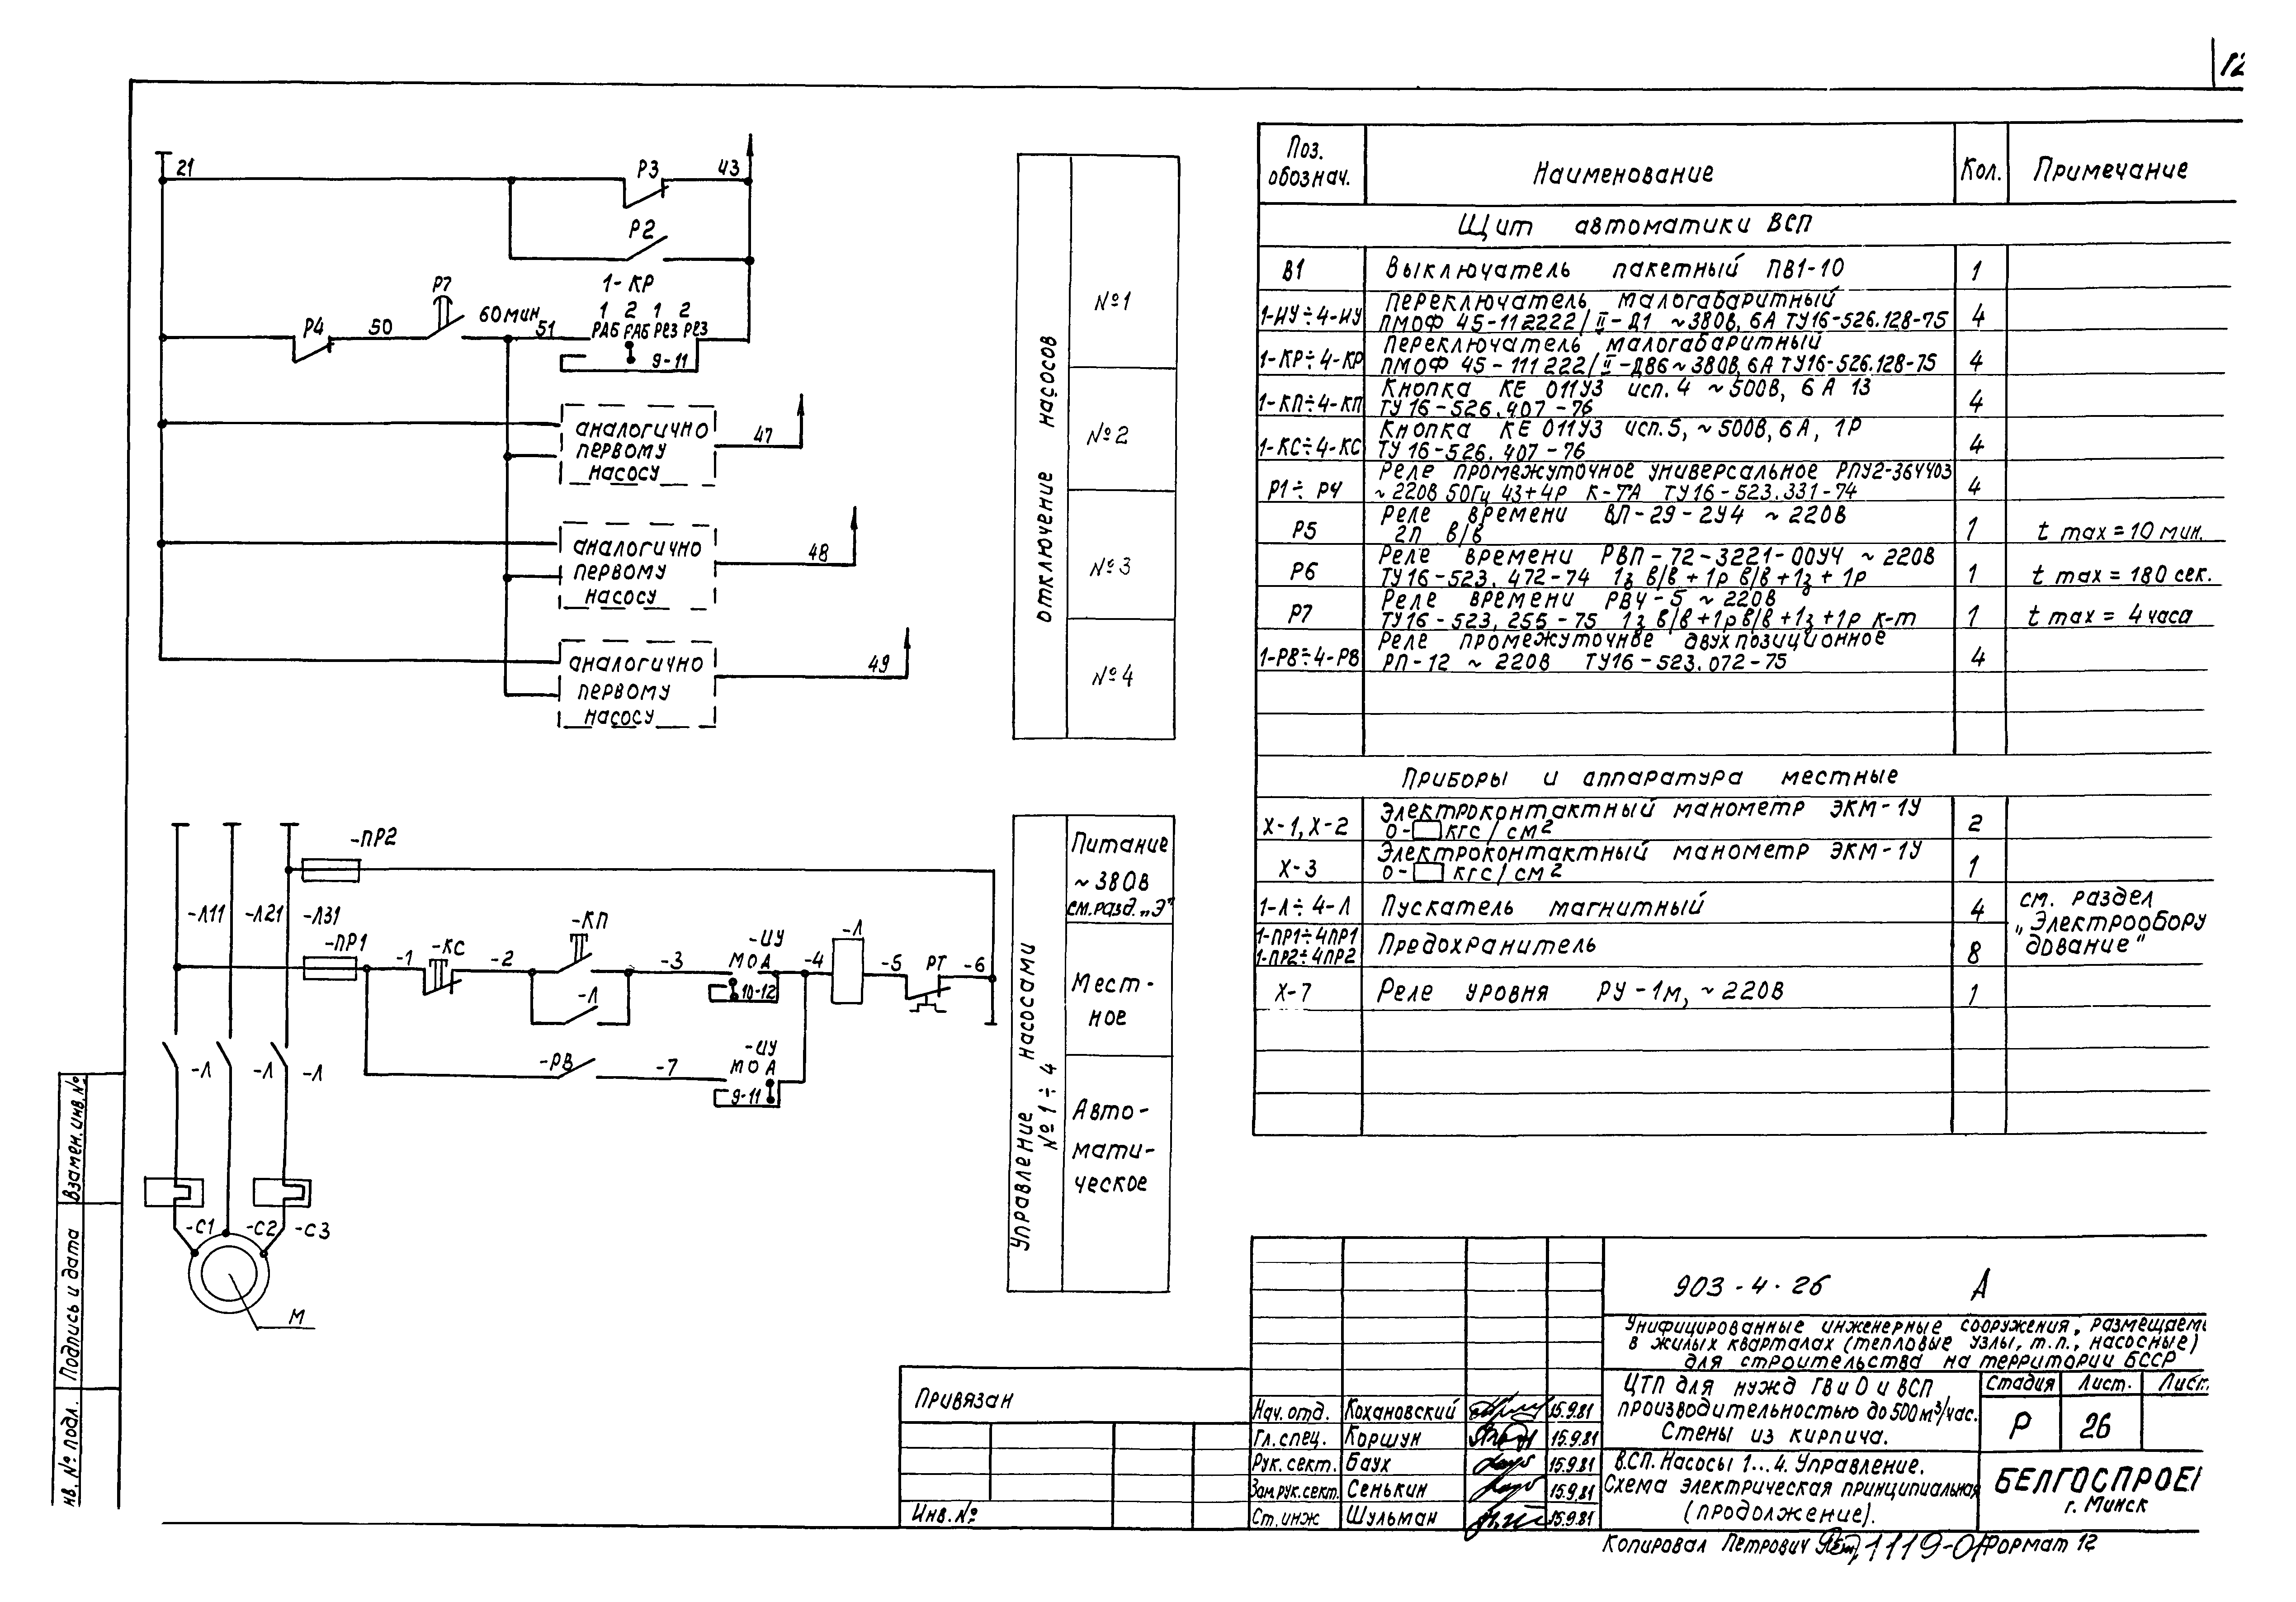 12
21
Р3
43
Р2
Р7
1-КР
1 2 1 2
РАБ РАБ РЕЗ РЕЗ
Р4
50
60 мин
51
9-11
аналогично
первому
насосу
47
аналогично
первому
насосу
48
аналогично
первому
насосу
49
отключение насосов
№1
№2
№3
№4
-ПР2
-Л11
-Л21
-Л31
-ПР1
-1
-КС
-2
-КП
-Л
-3
-ИУ
М О А
10-12
-4
-Л
-5
РТ
-6
-РВ
-7
-ИУ
М О А
9-11
-Л
-Л
-Л
-С1
-С2
-С3
М
Управление насосами
№ 1 ÷ 4
Питание
~ 380В
см. разд. „Э"
Мест-
ное
Авто-
мати-
ческое
Поз. обознач.
Наименование
Кол.
Примечание
Щит автоматики ВСП
В1 Выключатель пакетный ПВ1-10 1
1-ИУ÷4-ИУ Переключатель малогабаритный 4
ПМОФ 45-112222/II-Д1 ~380В, 6А ТУ16-526.128-75
1-КР÷4-КР Переключатель малогабаритный 4
ПМОФ 45-111222/II-Д86 ~380В, 6А ТУ16-526.128-75
1-КП÷4-КП Кнопка КЕ 011У3 исп. 4 ~500В, 6А 13 4
ТУ16-526.407-76
1-КС÷4-КС Кнопка КЕ 011У3 исп. 5, ~500В, 6А, 1Р 4
ТУ16-526.407-76
Р1÷Р4 Реле промежуточное универсальное РПУ2-364403 4
~220В 50Гц 43+4Р К-ТА ТУ16-523.331-74
Р5 Реле времени ВЛ-29-2У4 ~220В 1 t max = 10 мин.
2П в/в
Р6 Реле времени РВП-72-3221-00У4 ~220В 1 t max = 180 сек.
ТУ16-523.472-74 1з в/в+1р в/в+1з+1р
Р7 Реле времени РВЧ-5 ~220В 1 t max = 4 часа
ТУ16-523.255-75 1з в/в+1р в/в+1з+1р к-т
1-РВ÷4-РВ Реле промежуточное двухпозиционное 4
РП-12 ~220В ТУ16-523.072-75
Приборы и аппаратура местные
Х-1, Х-2 Электроконтактный манометр ЭКМ-1У 2
0- кгс/см²
Х-3 Электроконтактный манометр ЭКМ-1У 1
0- кгс/см²
1-Л÷4-Л Пускатель магнитный 4
см. раздел
„Электрообору
дование"
1-ПР1÷4ПР1
1-ПР2÷4ПР2 Предохранитель 8
Х-7 Реле уровня РУ-1М, ~220В 1
Взамен. инв. №
Подпись и дата
нв. № подл.
Привязан
Инв. №
903-4-26 А
Унифицированные инженерные сооружения, размещаемы
в жилых кварталах (тепловые узлы, т.п., насосные)
для строительства на территории БССР
Нач. отд. Кохановский 15.9.81
Гл. спец. Коршун 15.9.81
Рук. сект. Баух 15.9.81
Зам.рук.сект. Сенькин 15.9.81
Ст. инж Шульман 15.9.81
ЦТП для нужд ГВ и О и ВСП
производительностью до 500 м³/час.
Стены из кирпича.
Стадия Лист. Лист.
Р 26
ВСП. Насосы 1...4. Управление.
Схема электрическая принципиальная
(продолжение).
БЕЛГОСПРОЕ
г. Минск
Копировал Петрович 1119-01 Формат 12